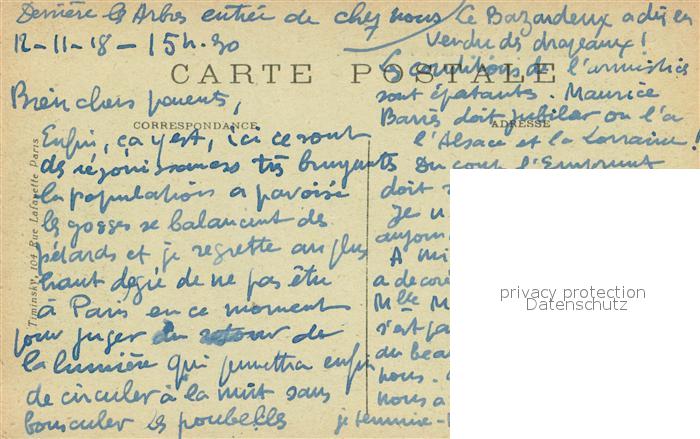 Derrière les Arbres entrée de chez nous
12-11-18 - 15h.30
CARTE POSTALE
Bien chers parents,
CORRESPONDANCE
Enfin, ça y est, ici ce sont
des réjouissances très bruyantes
la population a pavoisé
les gosses se balancent des
pétards et je regrette au plus
haut degré de ne pas être
à Paris en ce moment
pour juger du retour de
la lumière qui permettra enfin
de circuler à la nuit sans
bousculer les poubelles
Timinsky, 104 Rue Lafayette Paris
Le Bazardeux a dû en
vendre des drapeaux!
Les conditions de l'armistice
sont épatantes. Maurice
Barrès doit jubiler on l'a
ADRESSE
l'Alsace et la Lorraine!
Du coup l'Emprunt
doit
A
a
Mlle M
du beau
nous.
nous a
je termine -
privacy protection
Datenschutz